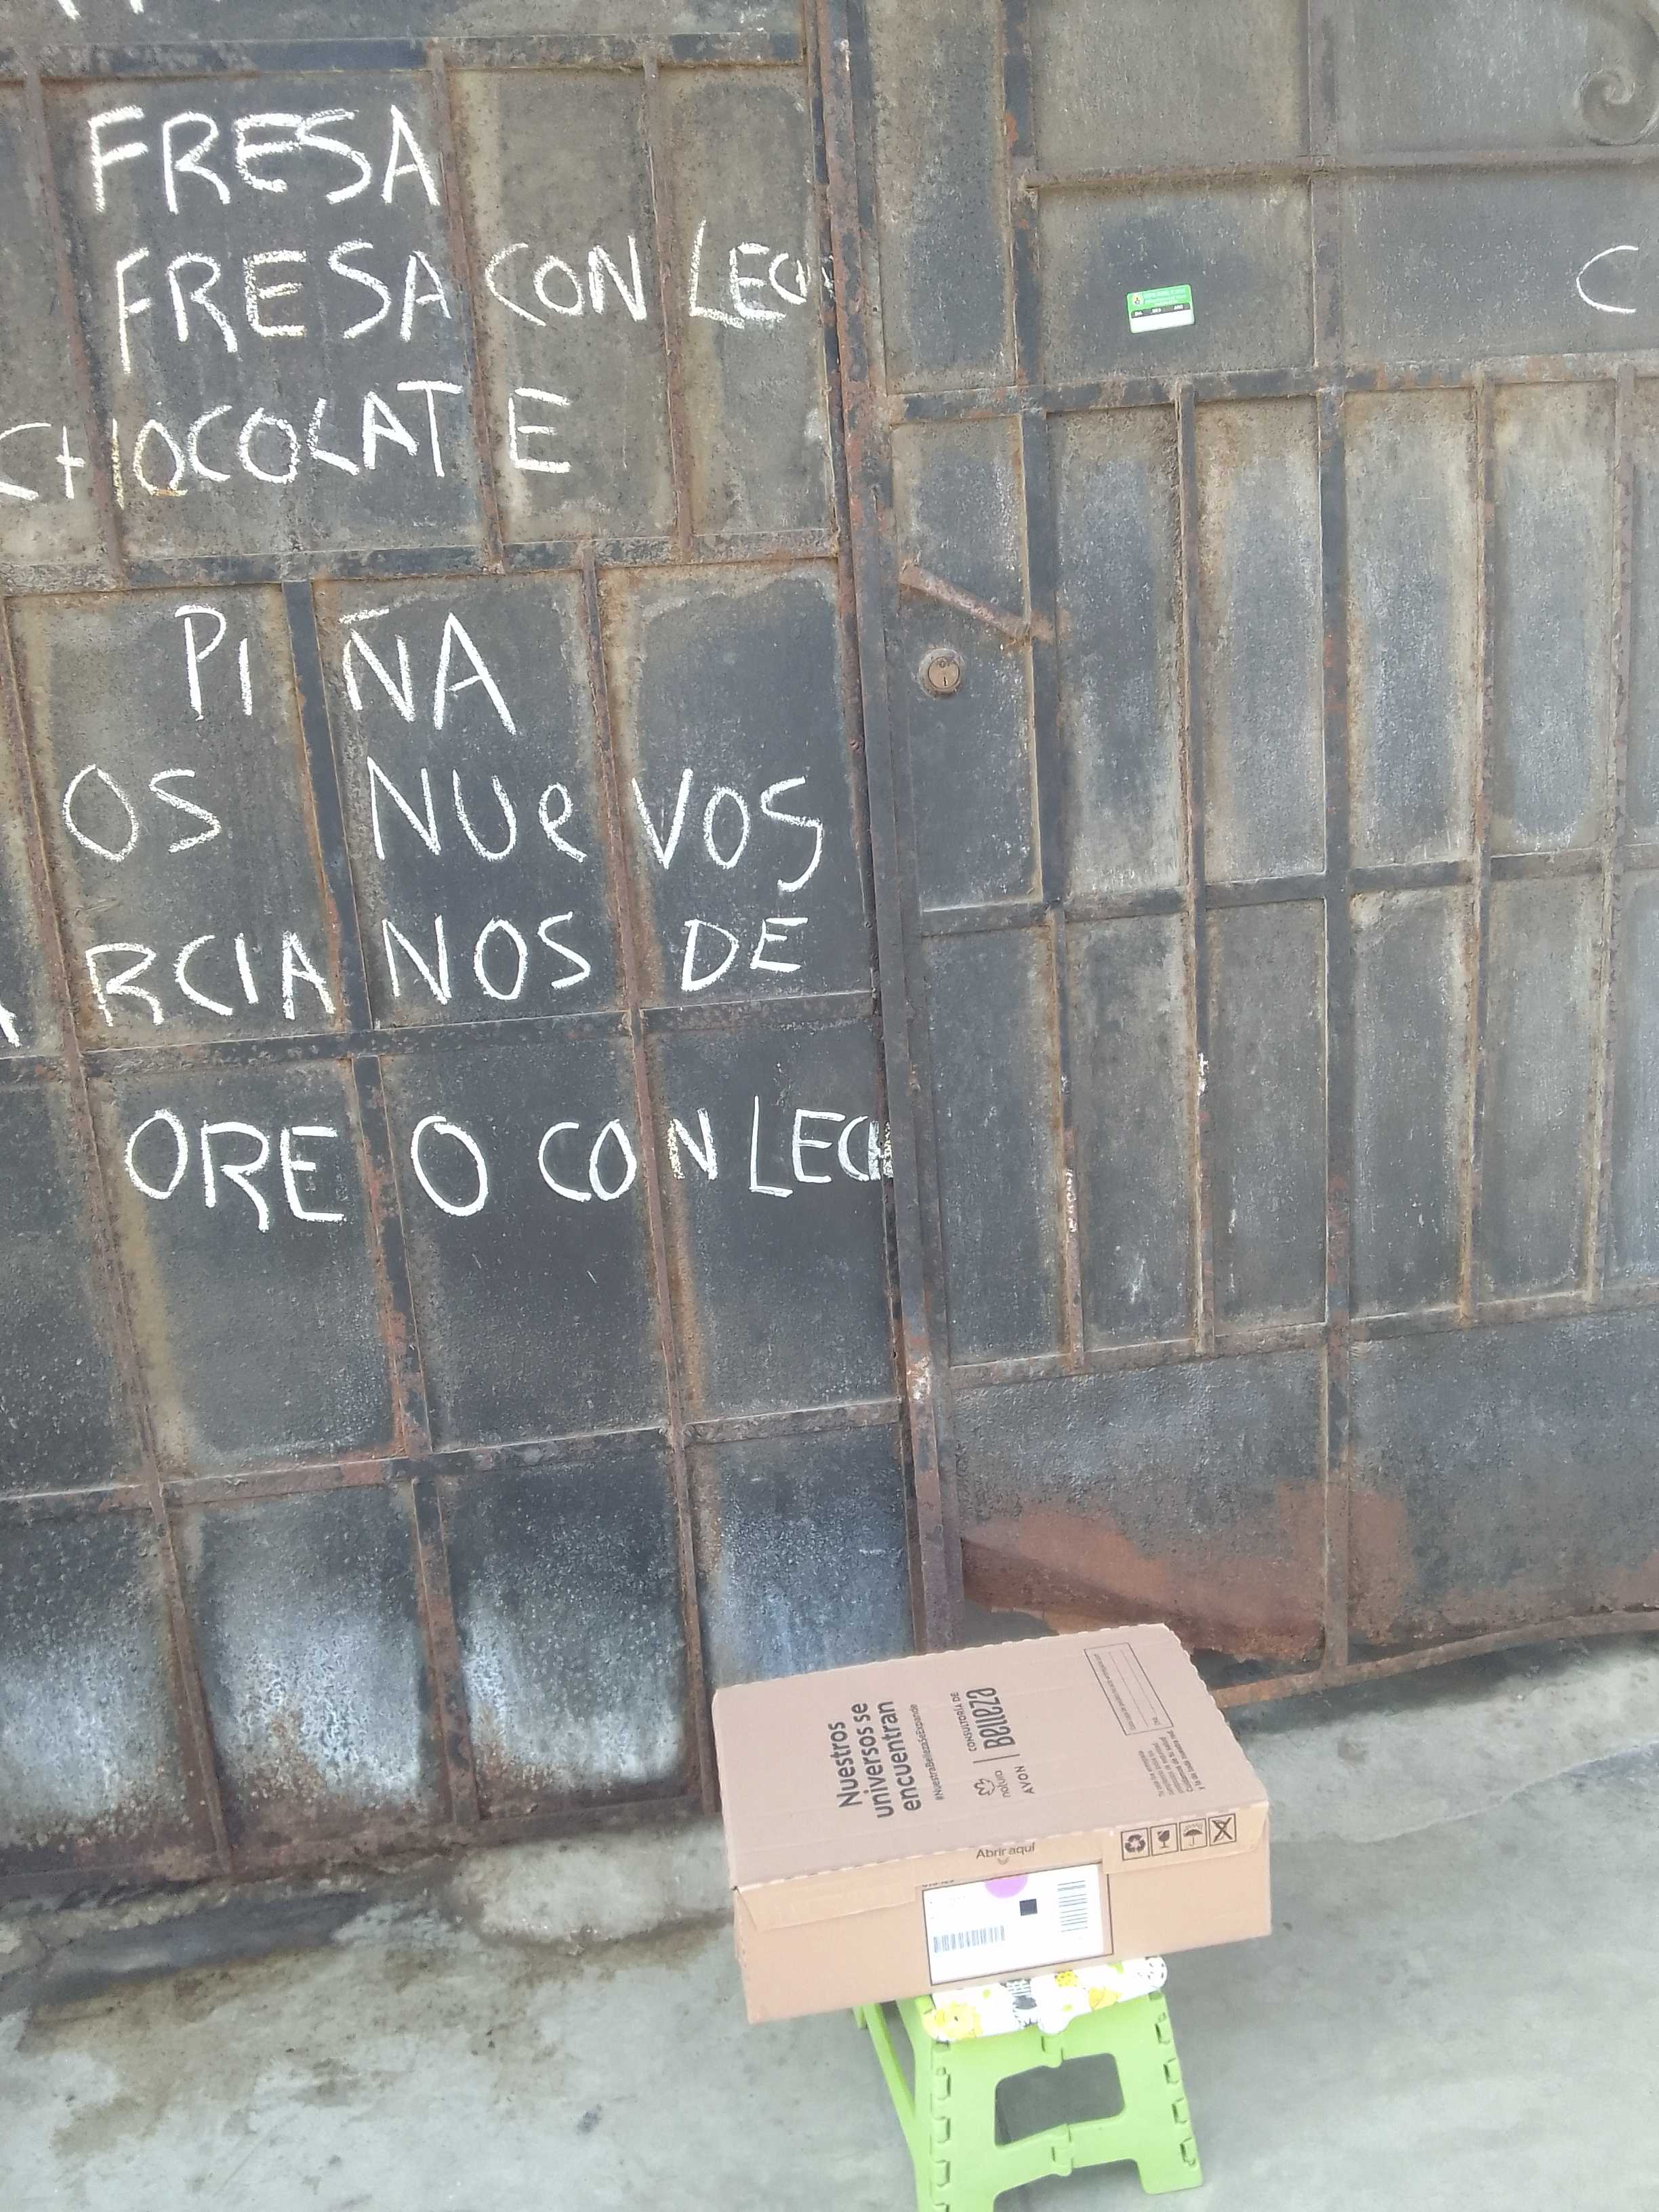 FRESA
FRESA CON LECH
CHOCOLATE
PIÑA
OS NUeVOS
ARCIANOS DE
OREO CON LECH
C
Nuestros
universos se
encuentran
#NuestraBellezaSeExpande
natura
AVON
CONSULTORÍA DE
Belleza
Abrir aquí